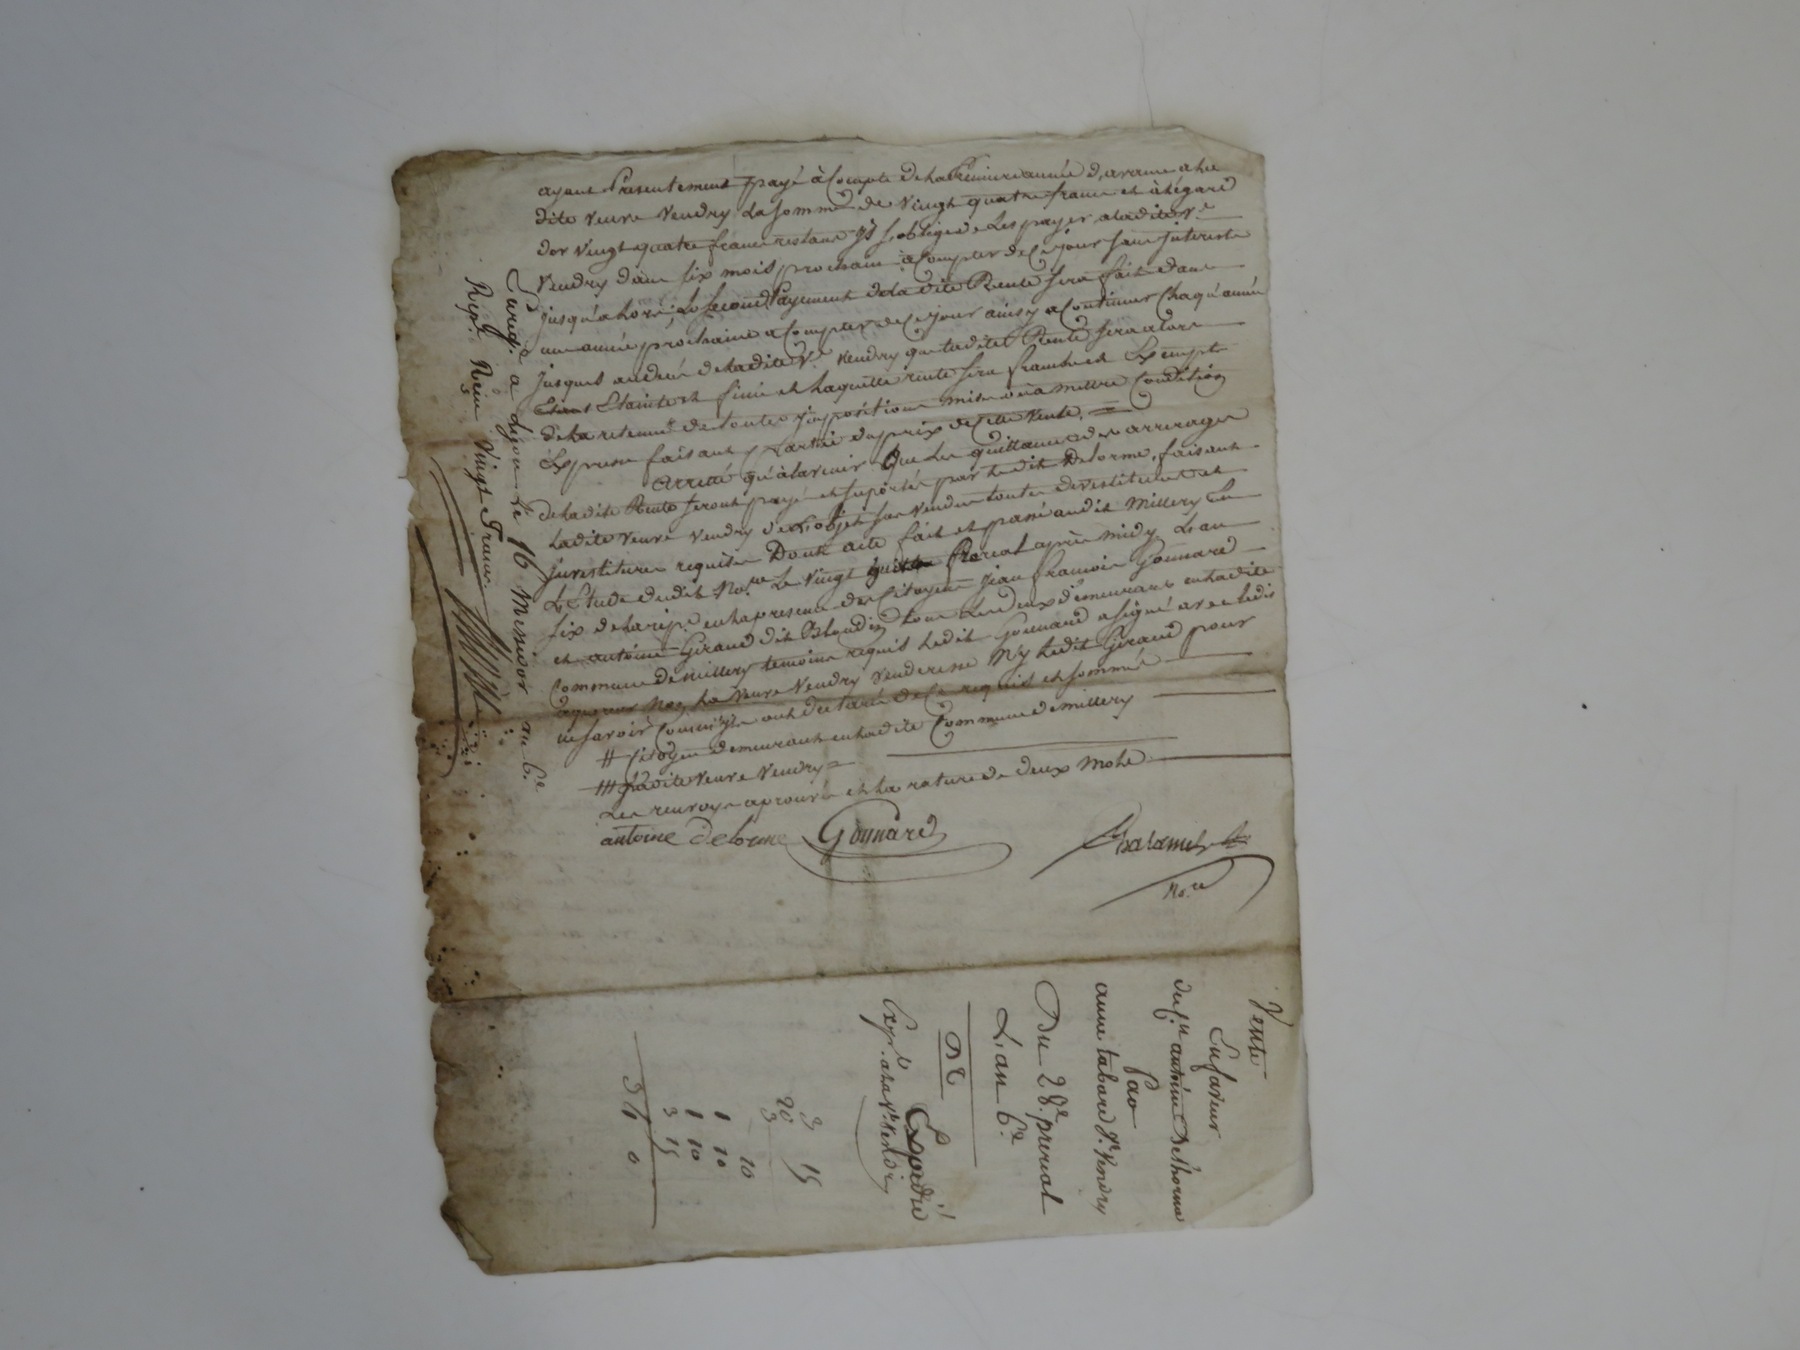 ayant Presentement payé à Compte de la Premiere année
dite veuve vendry la somme de vingt quatre francs et à légard
des vingt quatre francs restans il s'oblige de les payer a ladite v.e
vendry dans six mois prochain a Compter de Ce jour sans interests
jusqu'alors, le second Payement de la dite Rente sera fait dans
une année prochaine a Compter de Ce jour ainsy a Continuer Chaqu'année
jusques au deces de ladite v.e vendry que ladite Rente sera alors
Eteinte et finie et laquelle rente sera franche et Exempte
de la retenue de toutes impositions mises ou a mettre Condition
Expresse faisant Partie du prix de Cette vente.
arretté qu'à lavenir que les quittances des arrerages
de la dite Rente seront payé et suportés par ledit Delorme, faisant
ladite veuve vendry de l'objet sus vendu toutes devestitures et
investitures requises Dont acte fait et passé audit millery En
L'Etude dudit No.re Le vingt huit prerial après midy L'an
six de la rep.e en la presence des Citoyens jean francois Gonnard
et antoine Giraud dit Blondin tous les deux demeurant en ladite
Commune de millery temoins requis ledit Gonnard a signé avec ledit
aquereur Non la veuve Vendry venderesse N'y ledit Giraud pour
ne savoir Comm'ils ont declaré de Ce requis et sommés
# Citoyen demeurant en ladite Commune de millery
### Ladite veuve vendry =
Les renvoys aprouvés et la rature de deux mots
antoine delorme Gonnard
No.re
Enreg. a Lyon le 16 Messidor an 6.e
Reçu Vingt francs
Vente
En faveur
du C.en antoine Delhorme
Par
anne tabard v.e Vendry
Du 28.e prerial
L'an 6.e
Expedié
Exp.e a la v.e Vendry
3 15
20
3
10
1 10
1 10
3 15
34 0